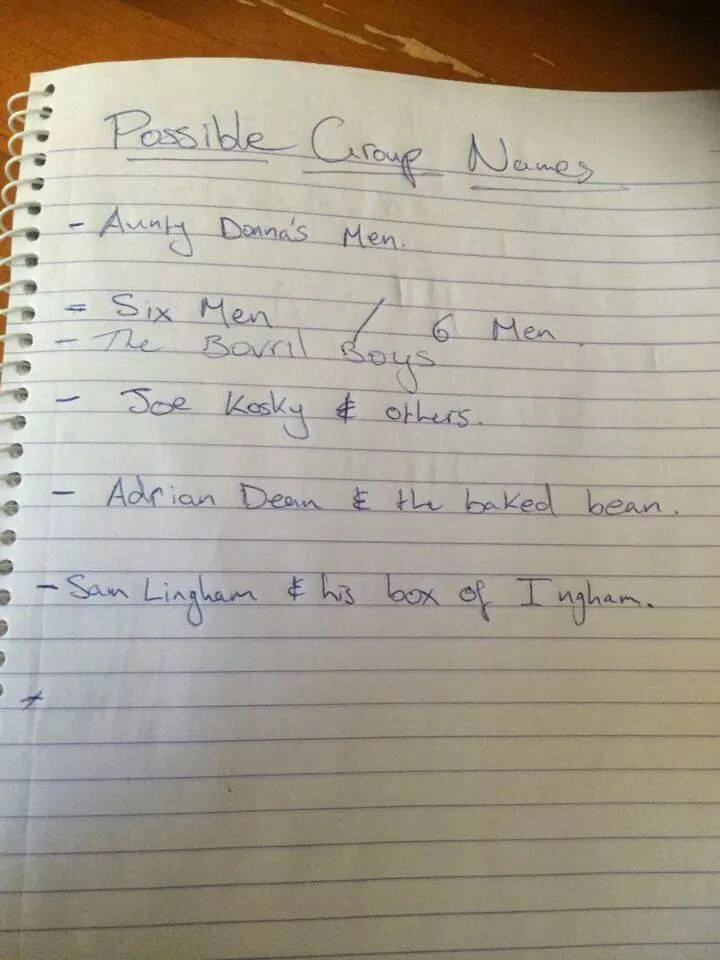 Possible Group Names
- Aunty Donna's Men.
= Six Men / 6 Men.
- The Bovril Boys
- Joe Kosky & others.
- Adrian Dean & the baked bean.
- Sam Lingham & his box of Ingham.
+